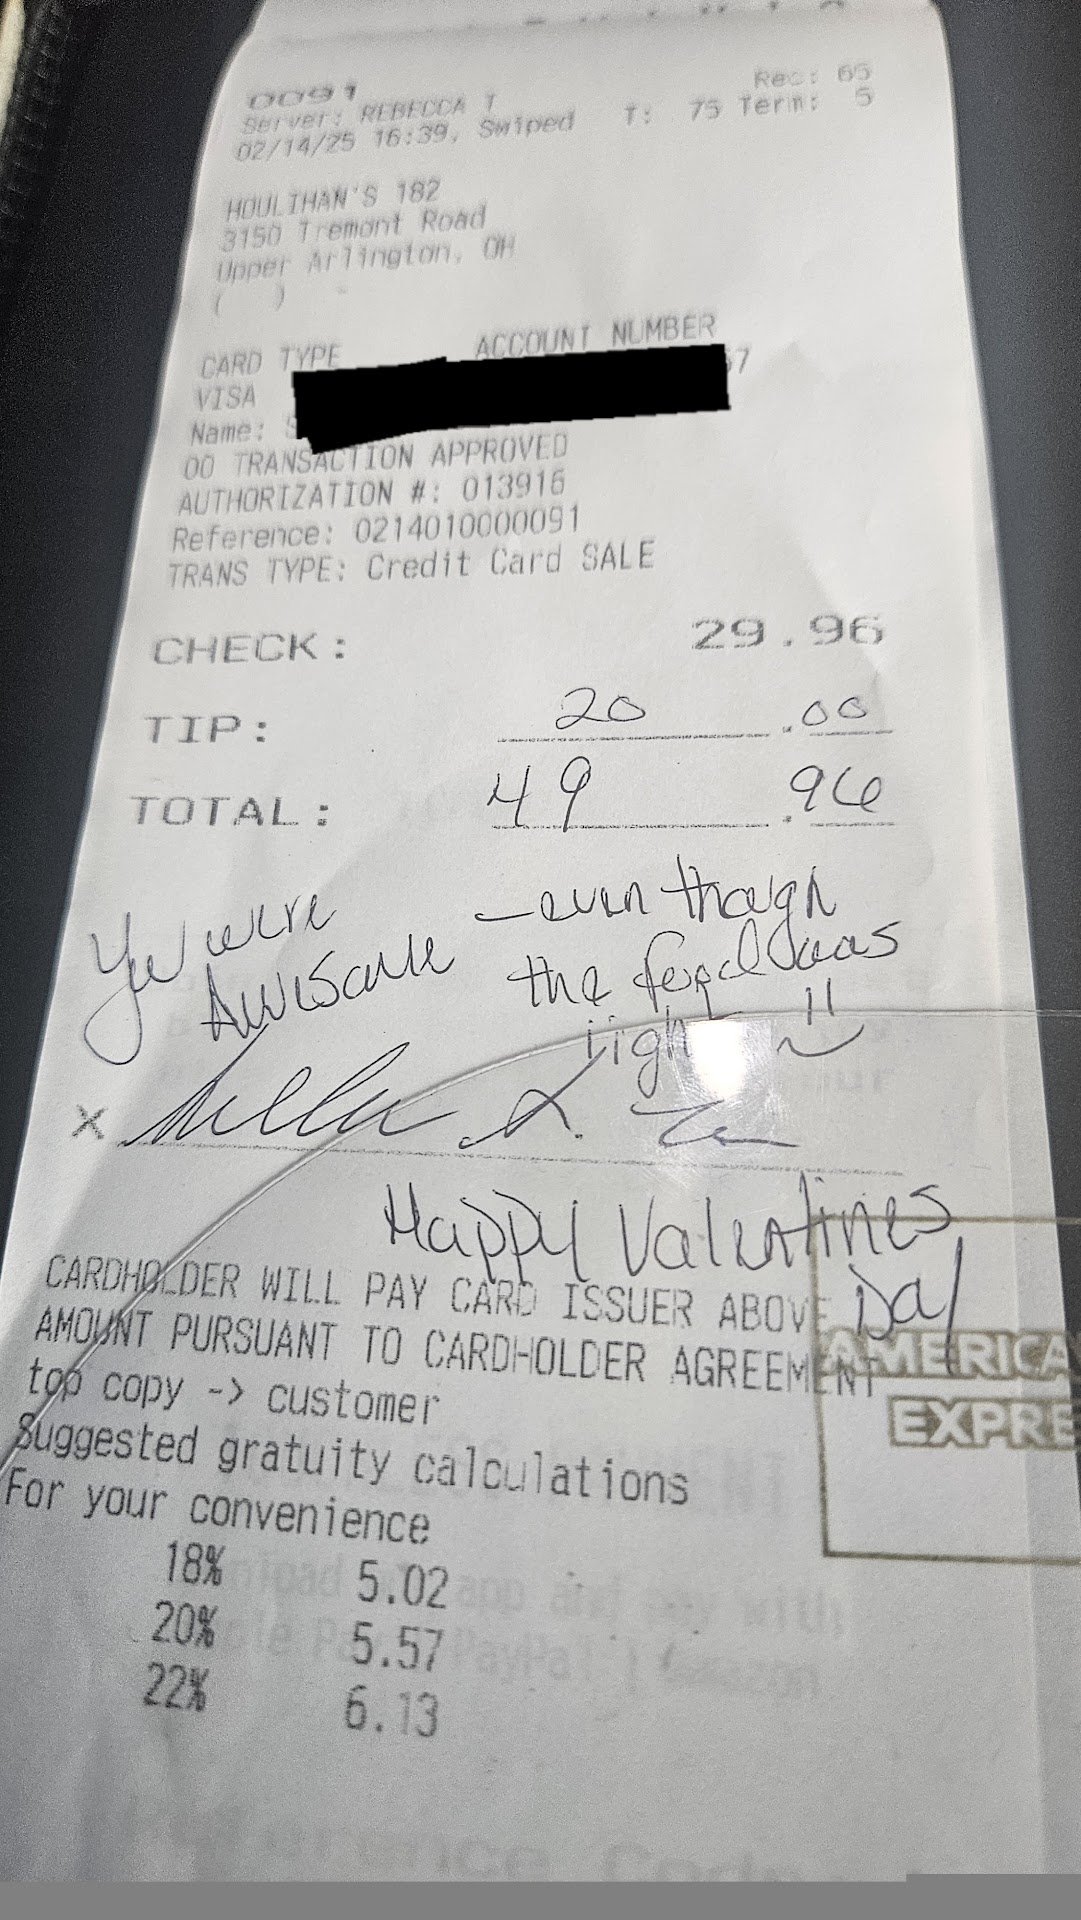 0091
Server: REBECCA T
Rec: 65
02/14/25 16:39, Swiped T: 75 Term: 5
HOULIHAN'S 182
3150 Tremont Road
Upper Arlington, OH
( ) -
CARD TYPE ACCOUNT NUMBER
VISA 67
Name: S
00 TRANSACTION APPROVED
AUTHORIZATION #: 013916
Reference: 0214010000091
TRANS TYPE: Credit Card SALE
CHECK: 29.96
TIP: 20.00
TOTAL: 49.96
You were
Awesome
-even though
the food was
iight
X
Happy Valentines
Day
CARDHOLDER WILL PAY CARD ISSUER ABOVE
AMOUNT PURSUANT TO CARDHOLDER AGREEMENT
top copy -> customer
Suggested gratuity calculations
For your convenience
18% 5.02
20% 5.57
22% 6.13
AMERICA
EXPRE